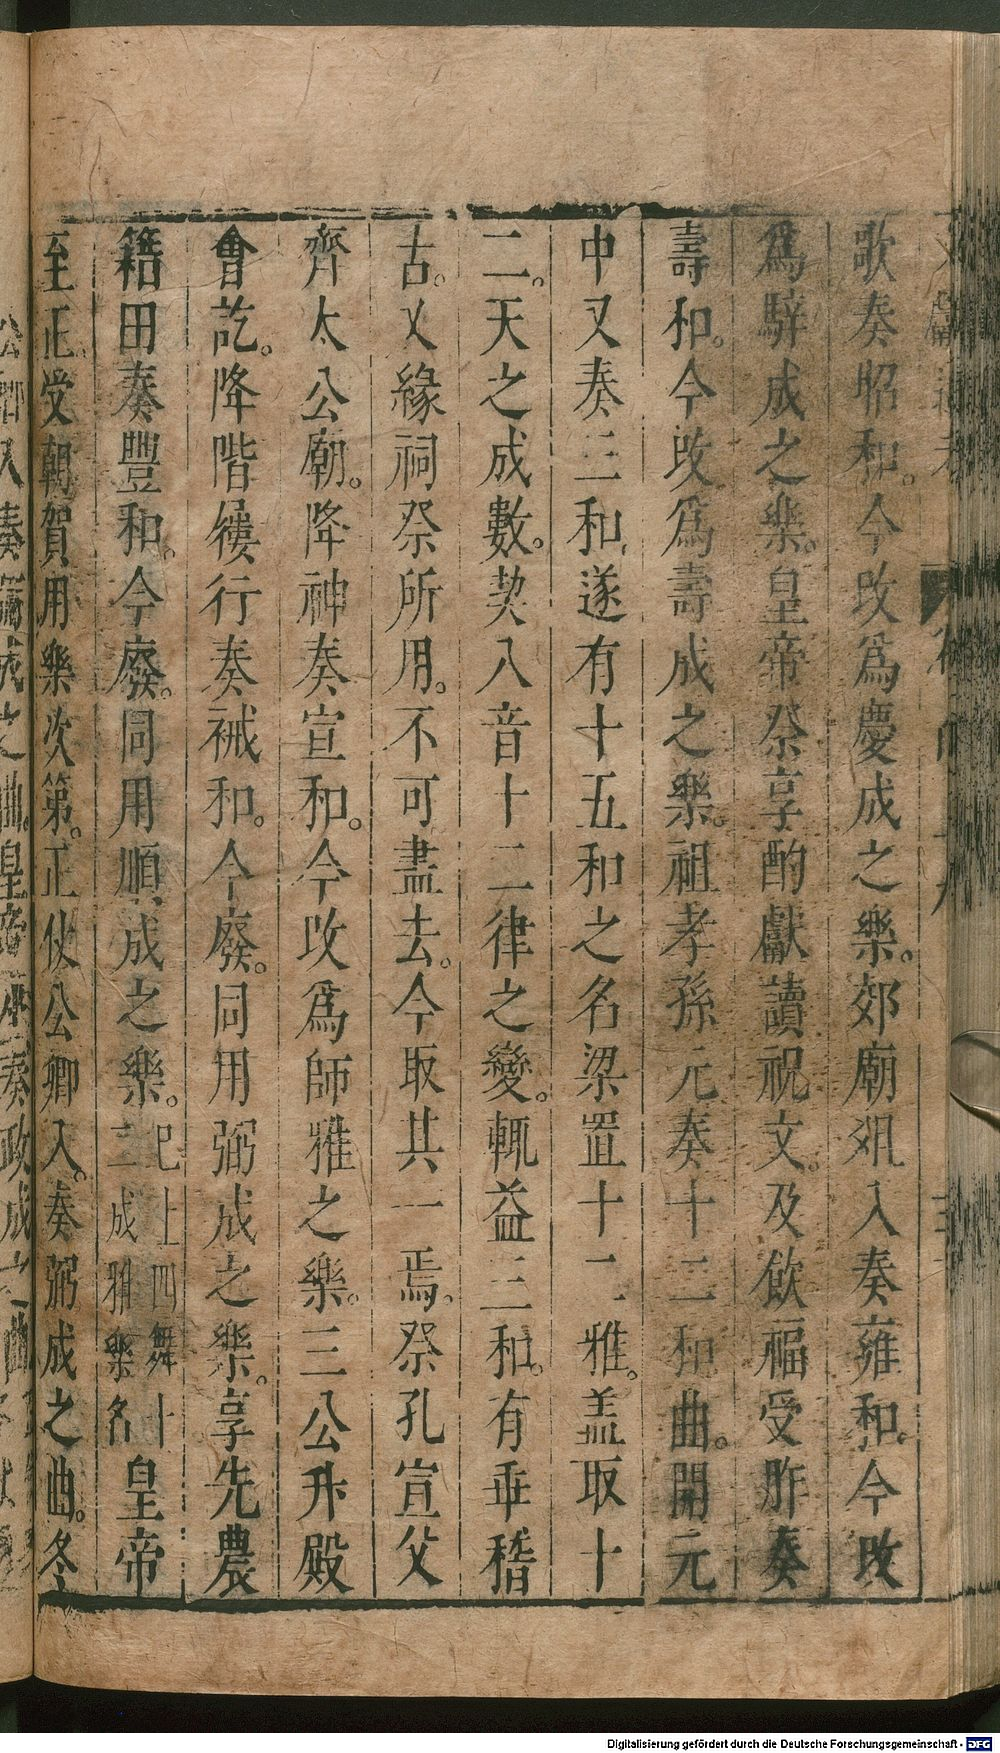 歌奏昭和。今改爲慶成之樂。郊廟俎入奏雍和。今改
爲騂成之樂。皇帝祭享酌獻讀祝文。及飲福受胙奏
壽和。今改爲壽成之樂。祖孝孫元奏十二和曲。開元
中又奏三和。遂有十五和之名梁置十二雅。蓋取十
二。天之成數。契八音十二律之變。輒益三和。有乖稽
古。又緣祠祭所用。不可盡去。今取其一焉。祭孔宣父
齊太公廟。降神奏宣和。今改爲師雅之樂。三公升殿
會訖。降階履行奏祴和。今廢。同用弼成之樂。享先農
籍田奏豐和。今廢。同用順成之樂。已上四舞十
二成雅樂名皇帝
至正。受朝賀用樂次第。正仗公卿入。奏弼成之曲。冬
Digitalisierung gefördert durch die Deutsche Forschungsgemeinschaft - DFG